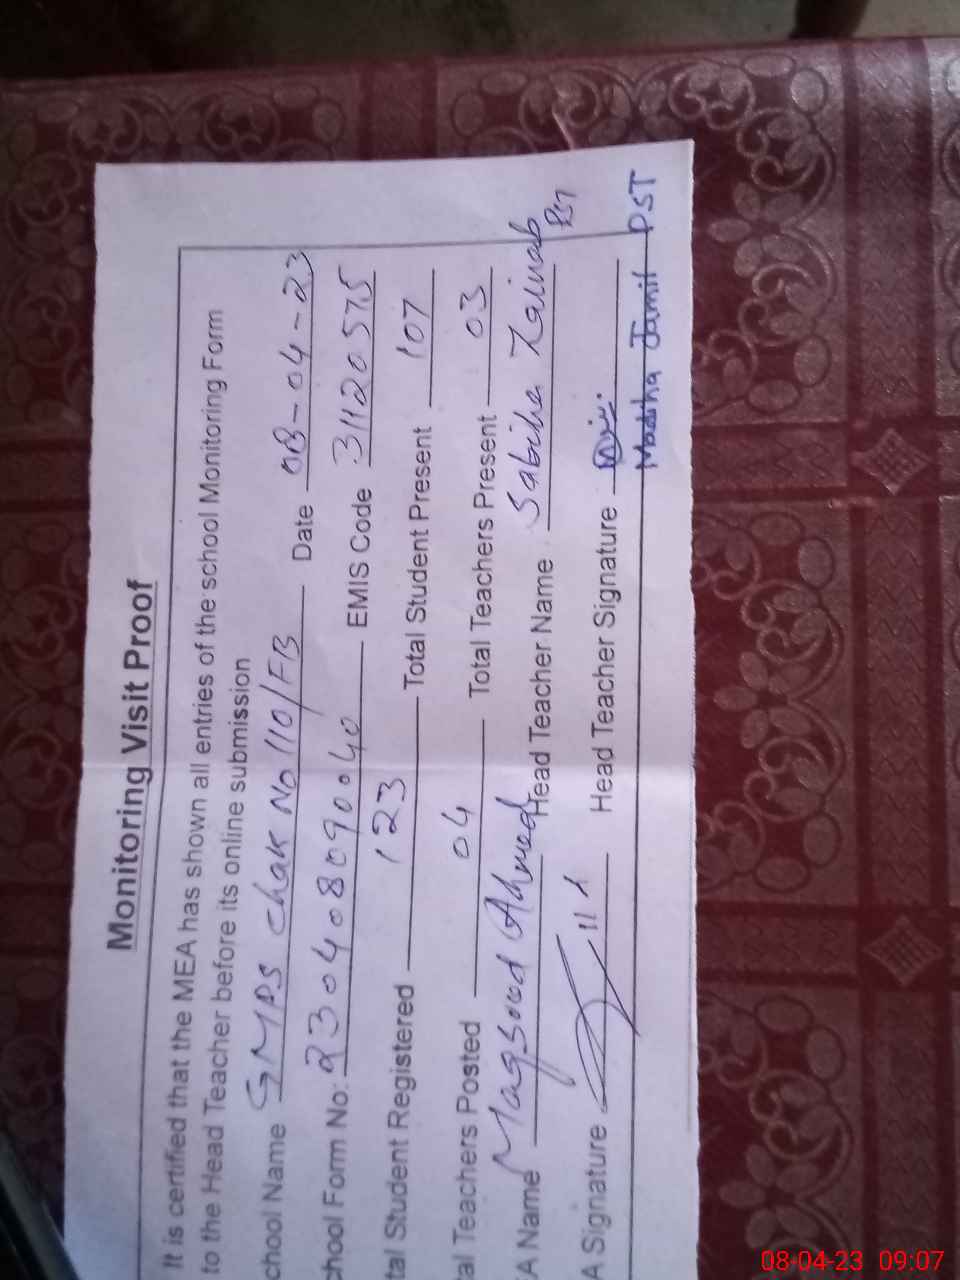 Monitoring Visit Proof
It is certified that the MEA has shown all entries of the school Monitoring Form
to the Head Teacher before its online submission
chool Name GMPS Chak No 110/FB Date 08-04-23
chool Form No: 230408090040 EMIS Code 31120575
tal Student Registered 123 Total Student Present 107
al Teachers Posted 04 Total Teachers Present 03
A Name Maqsood Ahmed Head Teacher Name Sabiha Zainab PST
A Signature Head Teacher Signature
Madiha Jamil PST
08-04-23 09:07